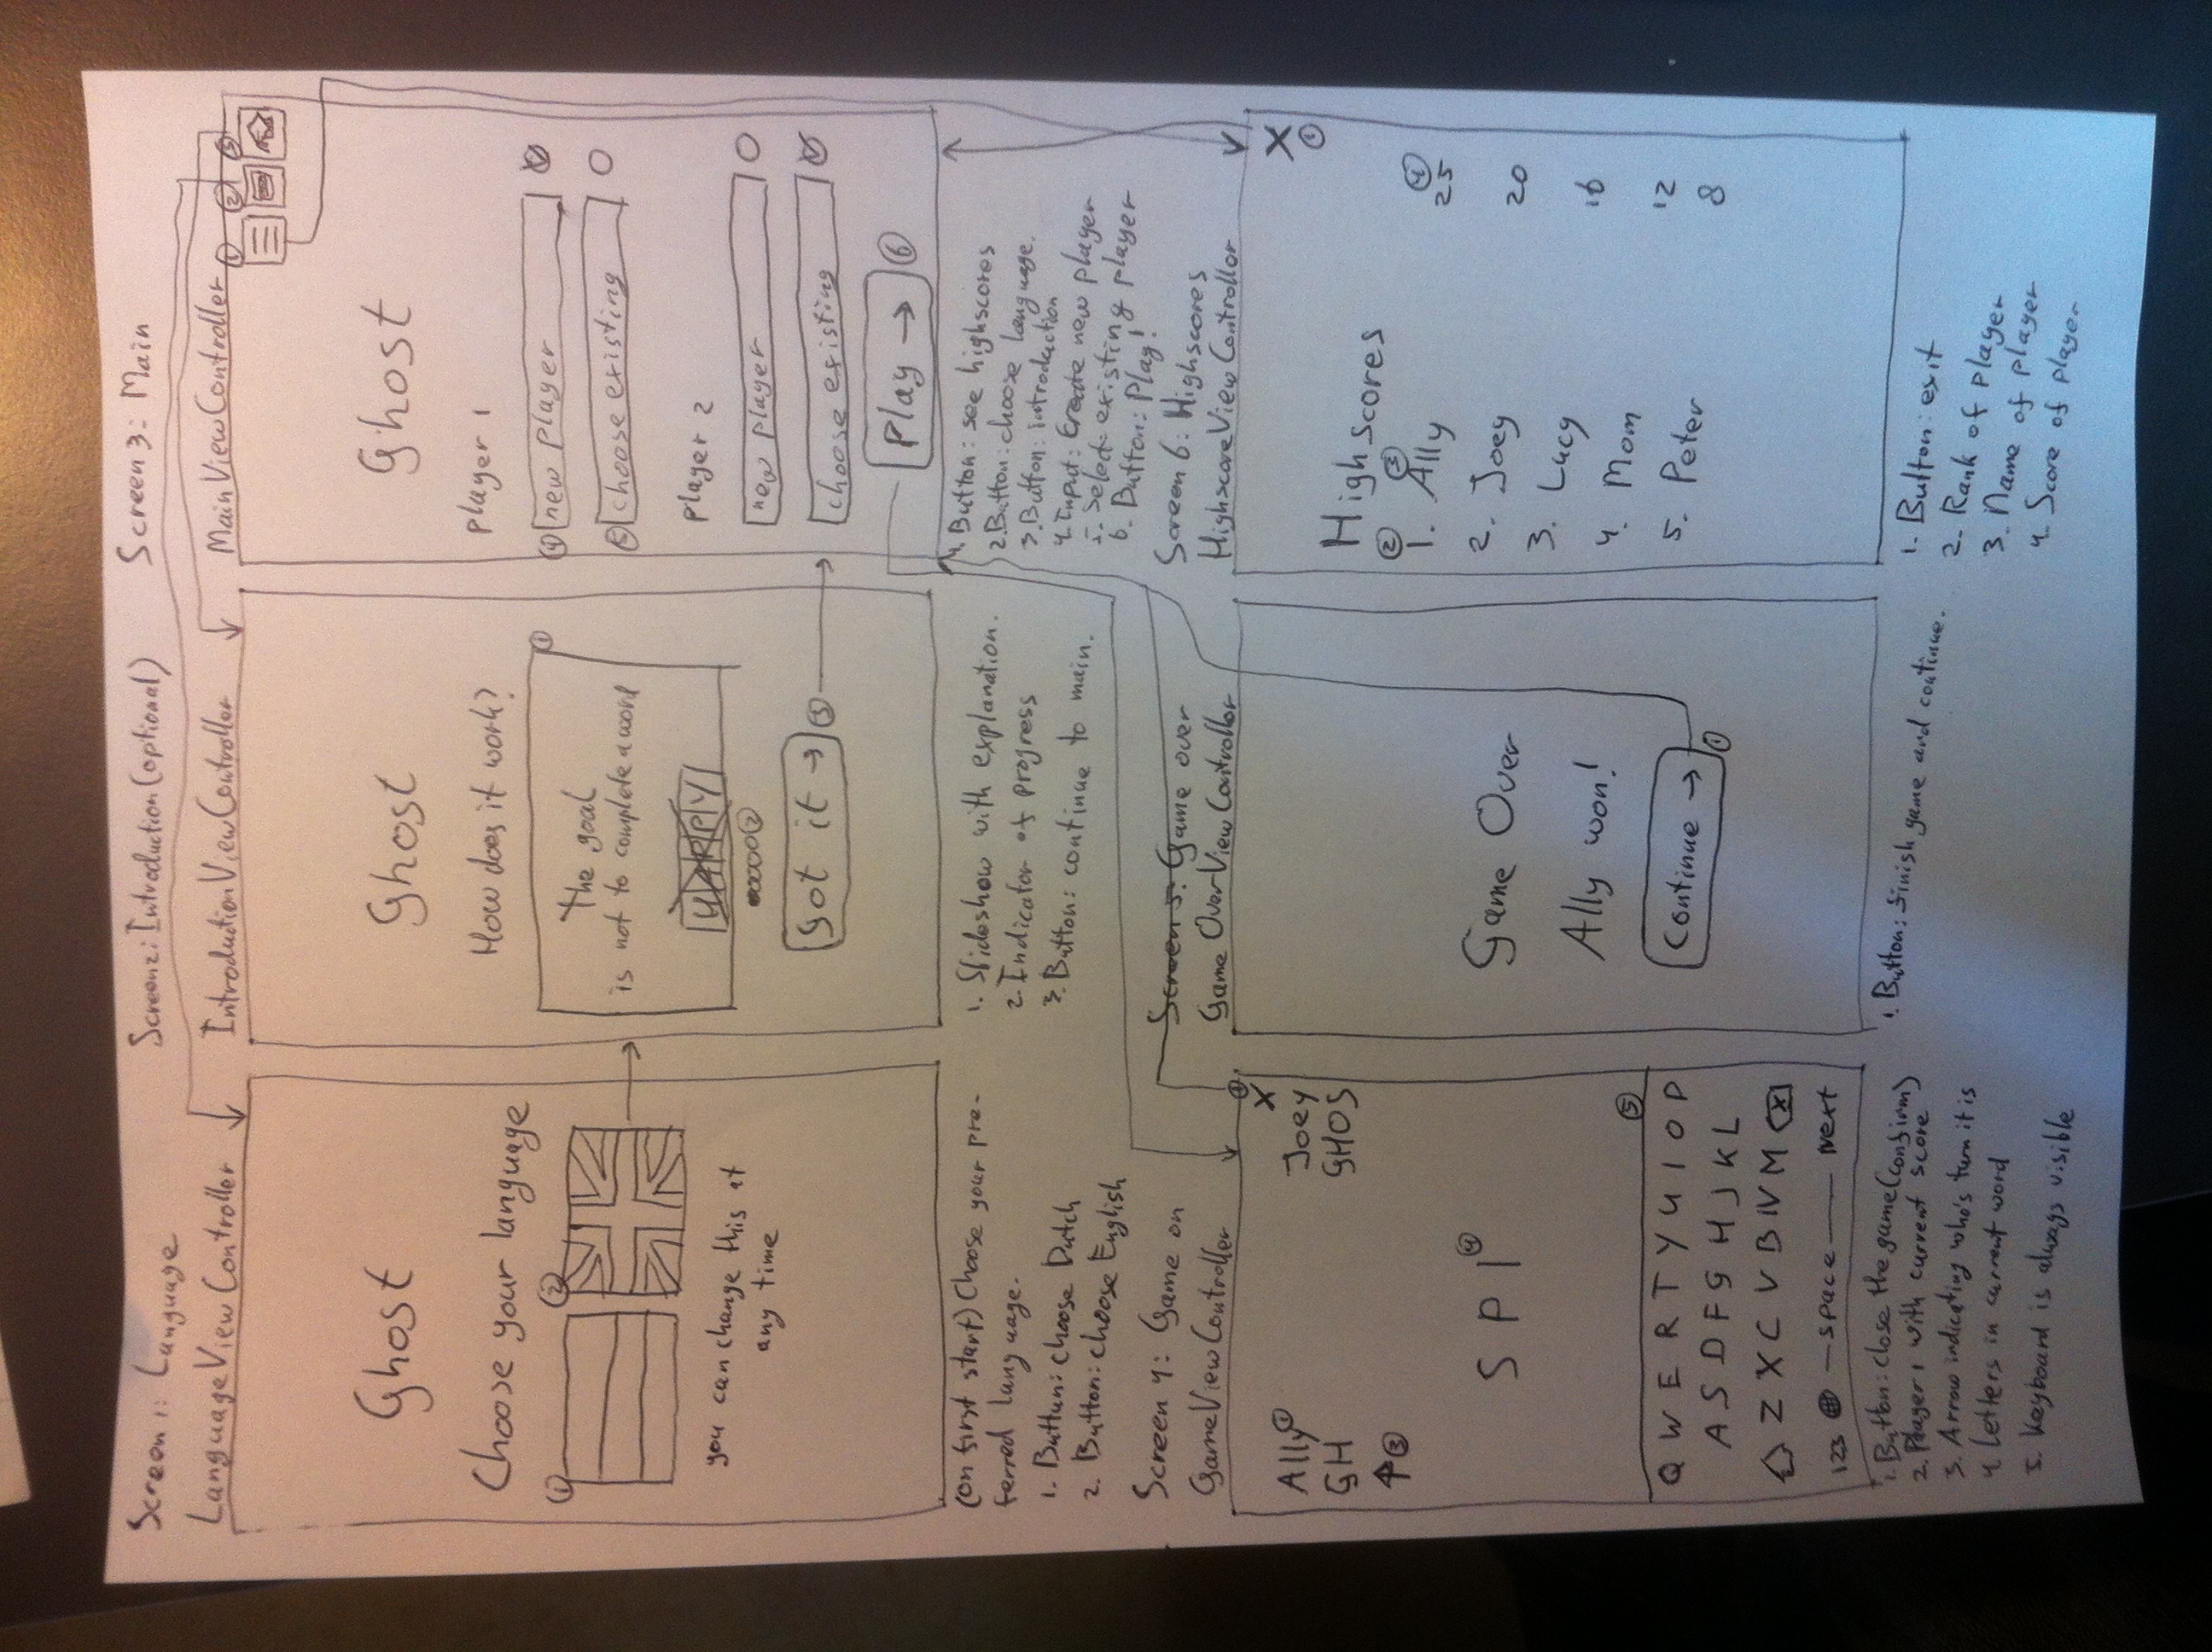 Screen 1: Language
LanguageViewController
Ghost
Choose your language
1
2
you can change this at
any time
(on first start) Choose your pre-
ferred language.
1. Button: choose Dutch
2. Button: choose English
Screen 2: Introduction (optional)
IntroductionViewController
Ghost
How does it work?
1
The goal
is not to complete a word
2
Got it →
3
1. Slideshow with explanation.
2. Indicator of progress
3. Button: continue to main.
Screen 3: Main
MainViewController
1
2
3
Ghost
player 1
4
new player
5
choose existing
player 2
new player
choose existing
Play →
6
1. Button: see highscores
2. Button: choose language.
3. Button: introduction
4. Input: Create new player
5. Select: existing player
6. Button: Play!
Screen 4: Game on
GameViewController
1
X
Ally
1
Joey
GH
GHOS
3
S P I
4
5
Q W E R T Y U I O P
A S D F G H J K L
Z X C V B N M X
123 space Next
1. Button: close the game (confirm)
2. Player 1 with current score
3. Arrow indicating who's turn it is
4. Letters in current word
5. Keyboard is always visible
Screen 5: Game over
Game OverViewController
Game Over
Ally won!
Continue →
1
1. Button: finish game and continue.
Screen 6: Highscores
HighscoreViewController
X
1
Highscores
2
3
4
1. Ally 25
2. Joey 20
3. Lucy 16
4. Mom 12
5. Peter 8
1. Button: exit
2. Rank of player
3. Name of player
4. Score of player